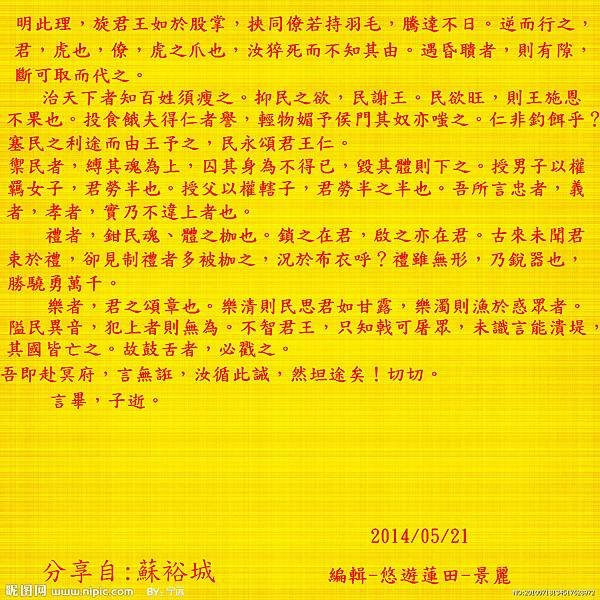 明此理，旋君王如於股掌，挾同僚若持羽毛，騰達不日。逆而行之，
君，虎也，僚，虎之爪也，汝猝死而不知其由。遇昏聵者，則有隙，
斷可取而代之。
治天下者知百姓須瘦之。抑民之欲，民謝王。民欲旺，則王施恩
不果也。投食餓夫得仁者譽，輕物媚予侯門其奴亦嗤之。仁非釣餌乎？
塞民之利途而由王予之，民永頌君王仁。
禦民者，縛其魂為上，囚其身為不得已，毀其體則下之。授男子以權
羈女子，君勞半也。授父以權轄子，君勞半之半也。吾所言忠者，義
者，孝者，實乃不違上者也。
禮者，鉗民魂、體之枷也。鎖之在君，啟之亦在君。古來未聞君
束於禮，卻見制禮者多被枷之，況於布衣呼？禮雖無形，乃銳器也，
勝驍勇萬千。
樂者，君之頌章也。樂清則民思君如甘露，樂濁則漁於惑眾者。
隘民異音，犯上者則無為。不智君王，只知戟可屠眾，未識言能潰堤，
其國皆亡之。故鼓舌者，必戳之。
吾即赴冥府，言無誑，汝循此誡，然坦途矣！切切。
言畢，子逝。
2014/05/21
分享自:蘇裕城
編輯-悠遊蓮田-景麗
昵图网 www.nipic.com